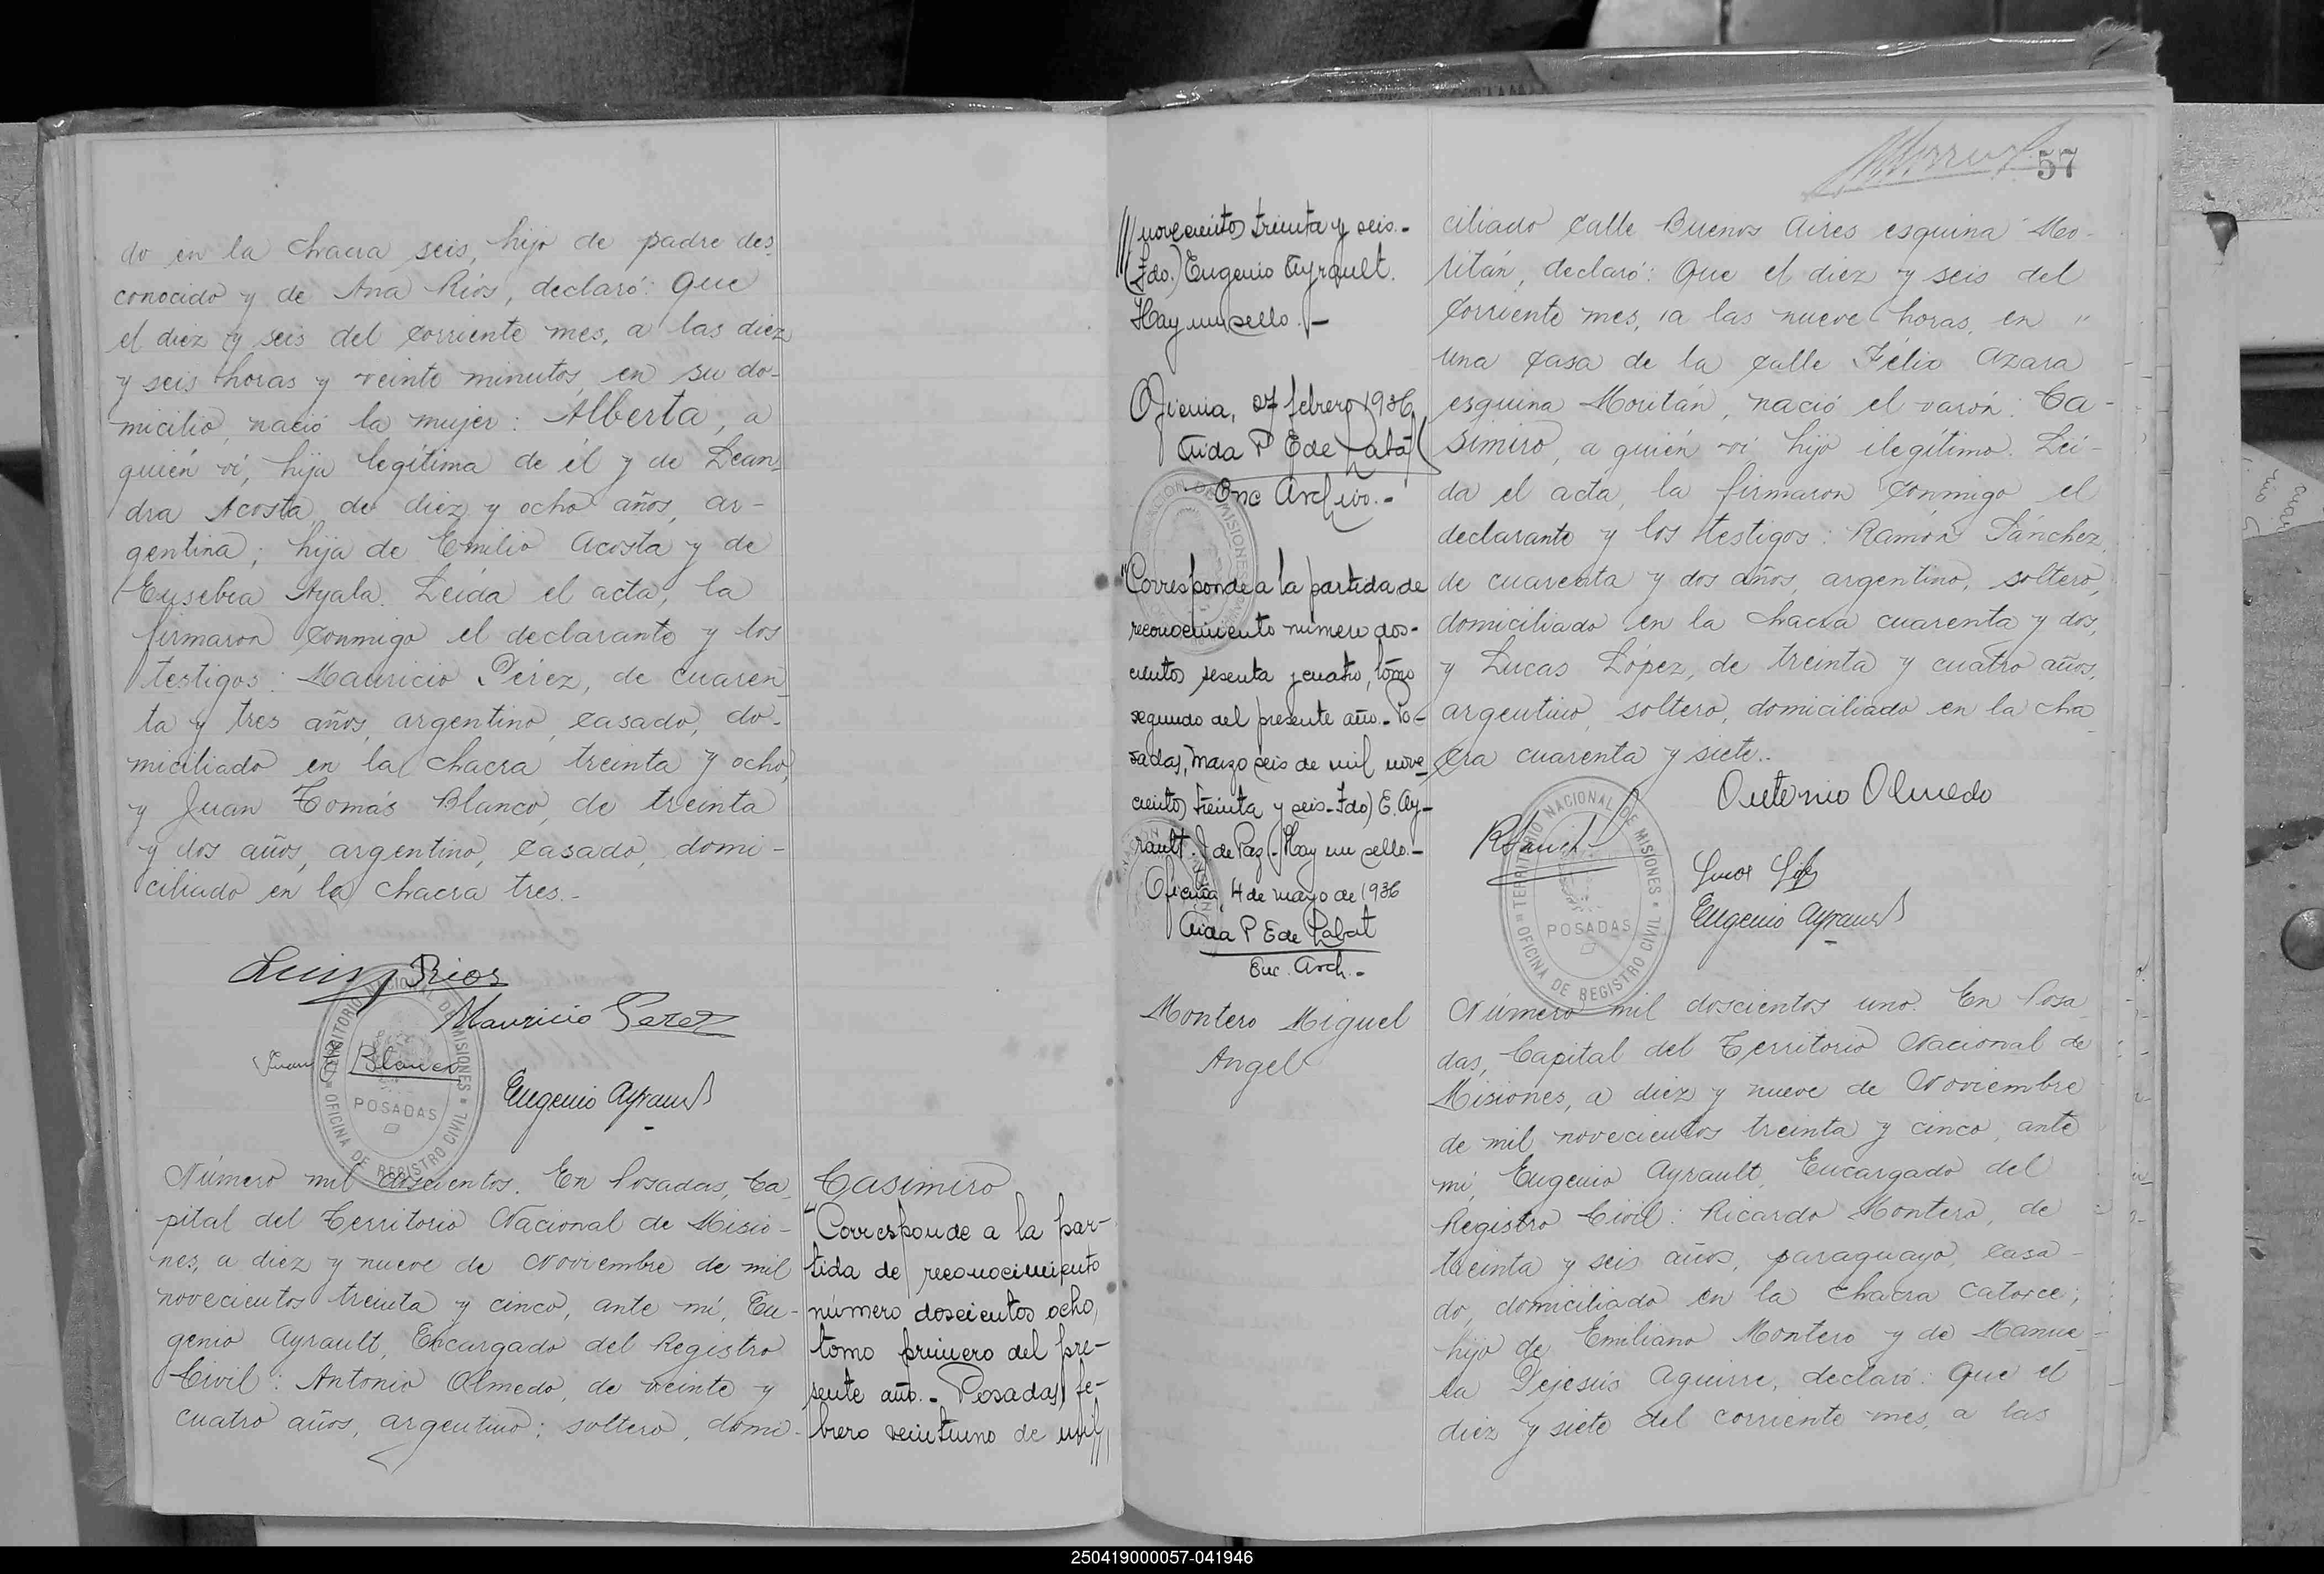 do en la chacra seis, hijo de padre des-
conocido y de Ana Ríos, declaró: Que
el diez y seis del corriente mes, a las diez
y seis horas y veinte minutos, en su do-
micilio, nació la mujer: Alberta, a
quién ví, hija legítima de él y de Lean-
dra Acosta, de diez y ocho años, ar-
gentina; hija de Emilio Acosta y de
Eusebia Ayala. Leída el acta, la
firmaron conmigo el declarante y los
testigos: Mauricio Pérez, de cuaren-
ta y tres años, argentino, casado, do-
miciliado en la chacra treinta y ocho,
y Juan Tomás Blanco, de treinta
y dos años, argentino, casado, domi-
ciliado en la chacra tres.-
Luis Rios
Mauricio Perez
Juan Blanco
Eugenio Ayrault
TERRITORIO NACIONAL DE MISIONES
POSADAS
OFICINA DE REGISTRO CIVIL
Número mil doscientos. En Posadas, Ca-
pital del Territorio Nacional de Misio-
nes, a diez y nueve de Noviembre de mil
novecientos treinta y cinco, ante mí, Eu-
genio Ayrault, Encargado del Registro
Civil: Antonio Olmedo, de veinte y
cuatro años, argentino; soltero, domi-
Casimiro
"Corresponde a la par-
tida de reconocimiento
número doscientos ocho,
tomo primero del pre-
sente año.- Posadas, fe-
brero veintiuno de mil
57
novecientos treinta y seis.-
(Fdo.) Eugenio Ayrault.
Hay un sello.-
Oficina, 27 febrero 1936
Aida P E de Labat
Enc Archivo.-
"Corresponde a la partida de
reconocimiento número dos-
cientos sesenta y cuatro, tomo
segundo del presente año.- Po-
sadas, marzo seis de mil nove-
cientos treinta y seis-Fdo) E. Ay-
rault. J de Paz.- Hay un sello.-
Oficina, 4 de mayo de 1936
Aida P E de Labat
Enc. Arch.-
Montero Miguel
Angel
ciliado calle Buenos Aires esquina Mo-
ritán, declaró: Que el diez y seis del
corriente mes, a las nueve horas, en "
una casa de la calle Félix Azara
esquina Moritán, nació el varón: Ca-
simiro, a quién ví hijo ilegítimo. Leí-
da el acta, la firmaron conmigo el
declarante y los testigos: Ramón Sánchez,
de cuarenta y dos años, argentino, soltero,
domiciliado en la chacra cuarenta y dos,
y Lucas López, de treinta y cuatro años,
argentino, soltero, domiciliado en la cha
cra cuarenta y siete..
Antonio Olmedo
Eugenio Ayrault
TERRITORIO NACIONAL DE MISIONES
POSADAS
OFICINA DE REGISTRO CIVIL
Número mil doscientos uno. En Posa
das, Capital del Territorio Nacional de
Misiones, a diez y nueve de Noviembre
de mil novecientos treinta y cinco, ante
mí, Eugenio Ayrault, Encargado del
Registro Civil: Ricardo Montero, de
treinta y seis años, paraguayo, casa-
do, domiciliado en la chacra catorce;
hijo de Emiliano Montero y de Manue-
la Dejesús Aguirre, declaró: Que el
diez y siete del corriente mes, a las
250419000057-041946